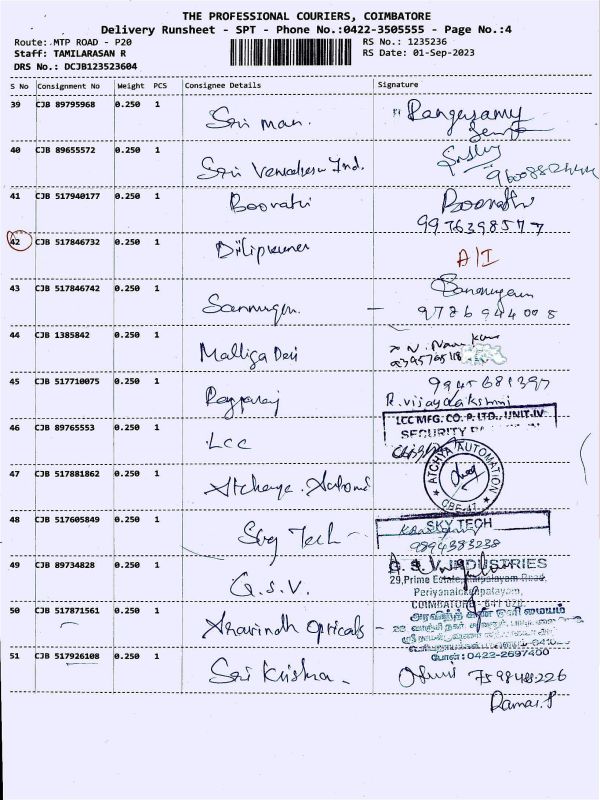 THE PROFESSIONAL COURIERS, COIMBATORE
Delivery Runsheet - SPT - Phone No.:0422-3505555 - Page No.:4
Route: MTP ROAD - P20
RS No.: 1235236
Staff: TAMILARASAN R
RS Date: 01-Sep-2023
DRS No.: DCJB123523604
S No Consignment No Weight PCS Consignee Details Signature
39 CJB 89795968 0.250 1 Sri man. Rangasamy
40 CJB 89655572 0.250 1 Sri Ind.
41 CJB 517940177 0.250 1 Boorathi Boorathi
9976398577
42 CJB 517846732 0.250 1 Dilipkumar A/I
43 CJB 517846742 0.250 1
9786944008
44 CJB 1385842 0.250 1 Malliga Devi
45 CJB 517710075 0.250 1 9945681397
R. vijayalakshmi
LCC MFG. CO. P. LTD., UNIT.IV
SECURITY
46 CJB 89765553 0.250 1 LCC
47 CJB 517881862 0.250 1 ATCHYA AUTOMATION
CBE-47
48 CJB 517605849 0.250 1 Sky Tech SKY TECH
9894383238
49 CJB 89734828 0.250 1 G.S.V. G. S. V. INDUSTRIES
29,Prime Estate,
COIMBATORE
50 CJB 517871561 0.250 1 Aravindh Opticals அரவிந்த் கண் ஒளி மையம்
போன்:0422-2697400
51 CJB 517926108 0.250 1 Sri Krishna 7598488226